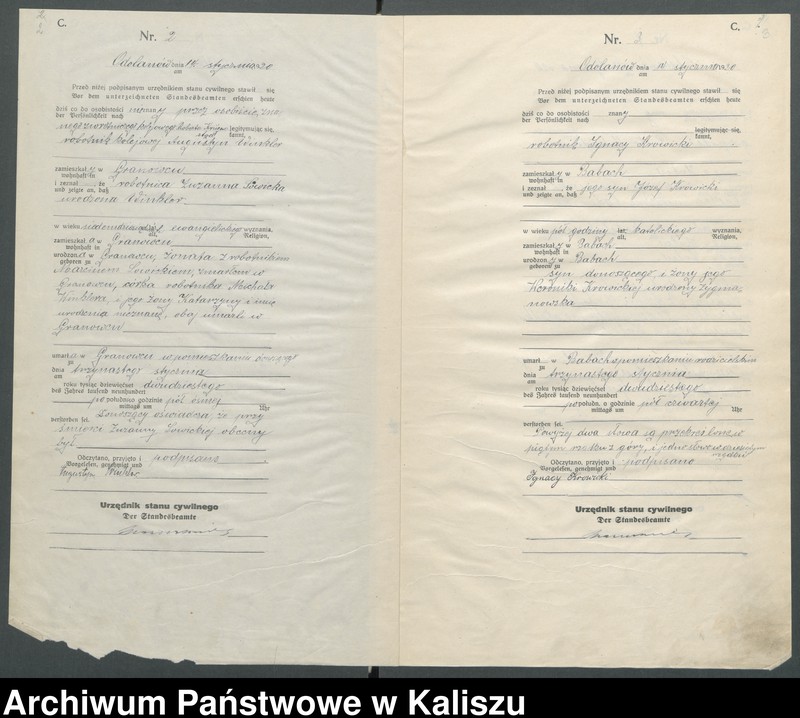 C.
Nr. 2
Odolanów dnia 14 stycznia 1920
am
Przed niżej podpisanym urzędnikiem stanu cywilnego stawił się
Vor dem unterzeichneten Standesbeamten erschien heute
dziś co do osobistości znany przez
der Persönlichkeit nach
legitymując się,
kannt,
robotnik kolejowy Augustyn Winkler
zamieszkały w Granowcu
wohnhaft in
i zeznał, że robotnica Zuzanna
und zeigte an, daß
urodzona Winkler
w wieku ewangielickiego wyznania,
alt, Religion,
zamieszkała w Granowcu
wohnhaft in
urodzona w Granowcu, żonata z robotnikiem
geboren zu
Marcinem zmarłem w
Granowcu, córka robotnika Michała
Winklera, i jego żony Katarzyny
urodzenia nieznane, oboj umarli w
Granowcu
umarła w Granowcu w pomieszkaniu
zu
dnia trzynastego stycznia
am
roku tysiąc dziewięćset dwudziestego
des Jahres tausend neunhundert
popołudniu o godzinie pół ósmej
mittags um Uhr
verstorben sei.
Donoszący oświadcza że przy
śmierci Zuzanny obecny
był
Odczytano, przyjęto i podpisano
Vorgelesen, genehmigt und
Augustyn Winkler
Urzędnik stanu cywilnego
Der Standesbeamte
C.
Nr. 3
Odolanów dnia 14 stycznia 1920
am
Przed niżej podpisanym urzędnikiem stanu cywilnego stawił się
Vor dem unterzeichneten Standesbeamten erschien heute
dziś co do osobistości znany
der Persönlichkeit nach
legitymując się,
kannt,
robotnik Ignacy Krowicki
zamieszkały w Babach
wohnhaft in
i zeznał, że jego syn Józef Krowicki
und zeigte an, daß
w wieku pół godziny lat, katolickiego wyznania,
alt, Religion,
zamieszkały w Babach
wohnhaft in
urodzony w Babach
geboren zu
syn donoszącego i żony jego
Weroniki Krowickiej urodzony Zygma-
nowska
umarł w Babach w pomieszkaniu rodzicielskim
zu
dnia trzynastego stycznia
am
roku tysiąc dziewięćset dwudziestego
des Jahres tausend neunhundert
popołud. o godzinie pół czwartej
mittags um Uhr
verstorben sei.
Powyżej dwa słowa są przekreślone w
piątym z góry, i jedno słowo w
Odczytano, przyjęto i podpisano
Vorgelesen, genehmigt und
Ignacy Krowicki
Urzędnik stanu cywilnego
Der Standesbeamte
Archiwum Państwowe w Kaliszu